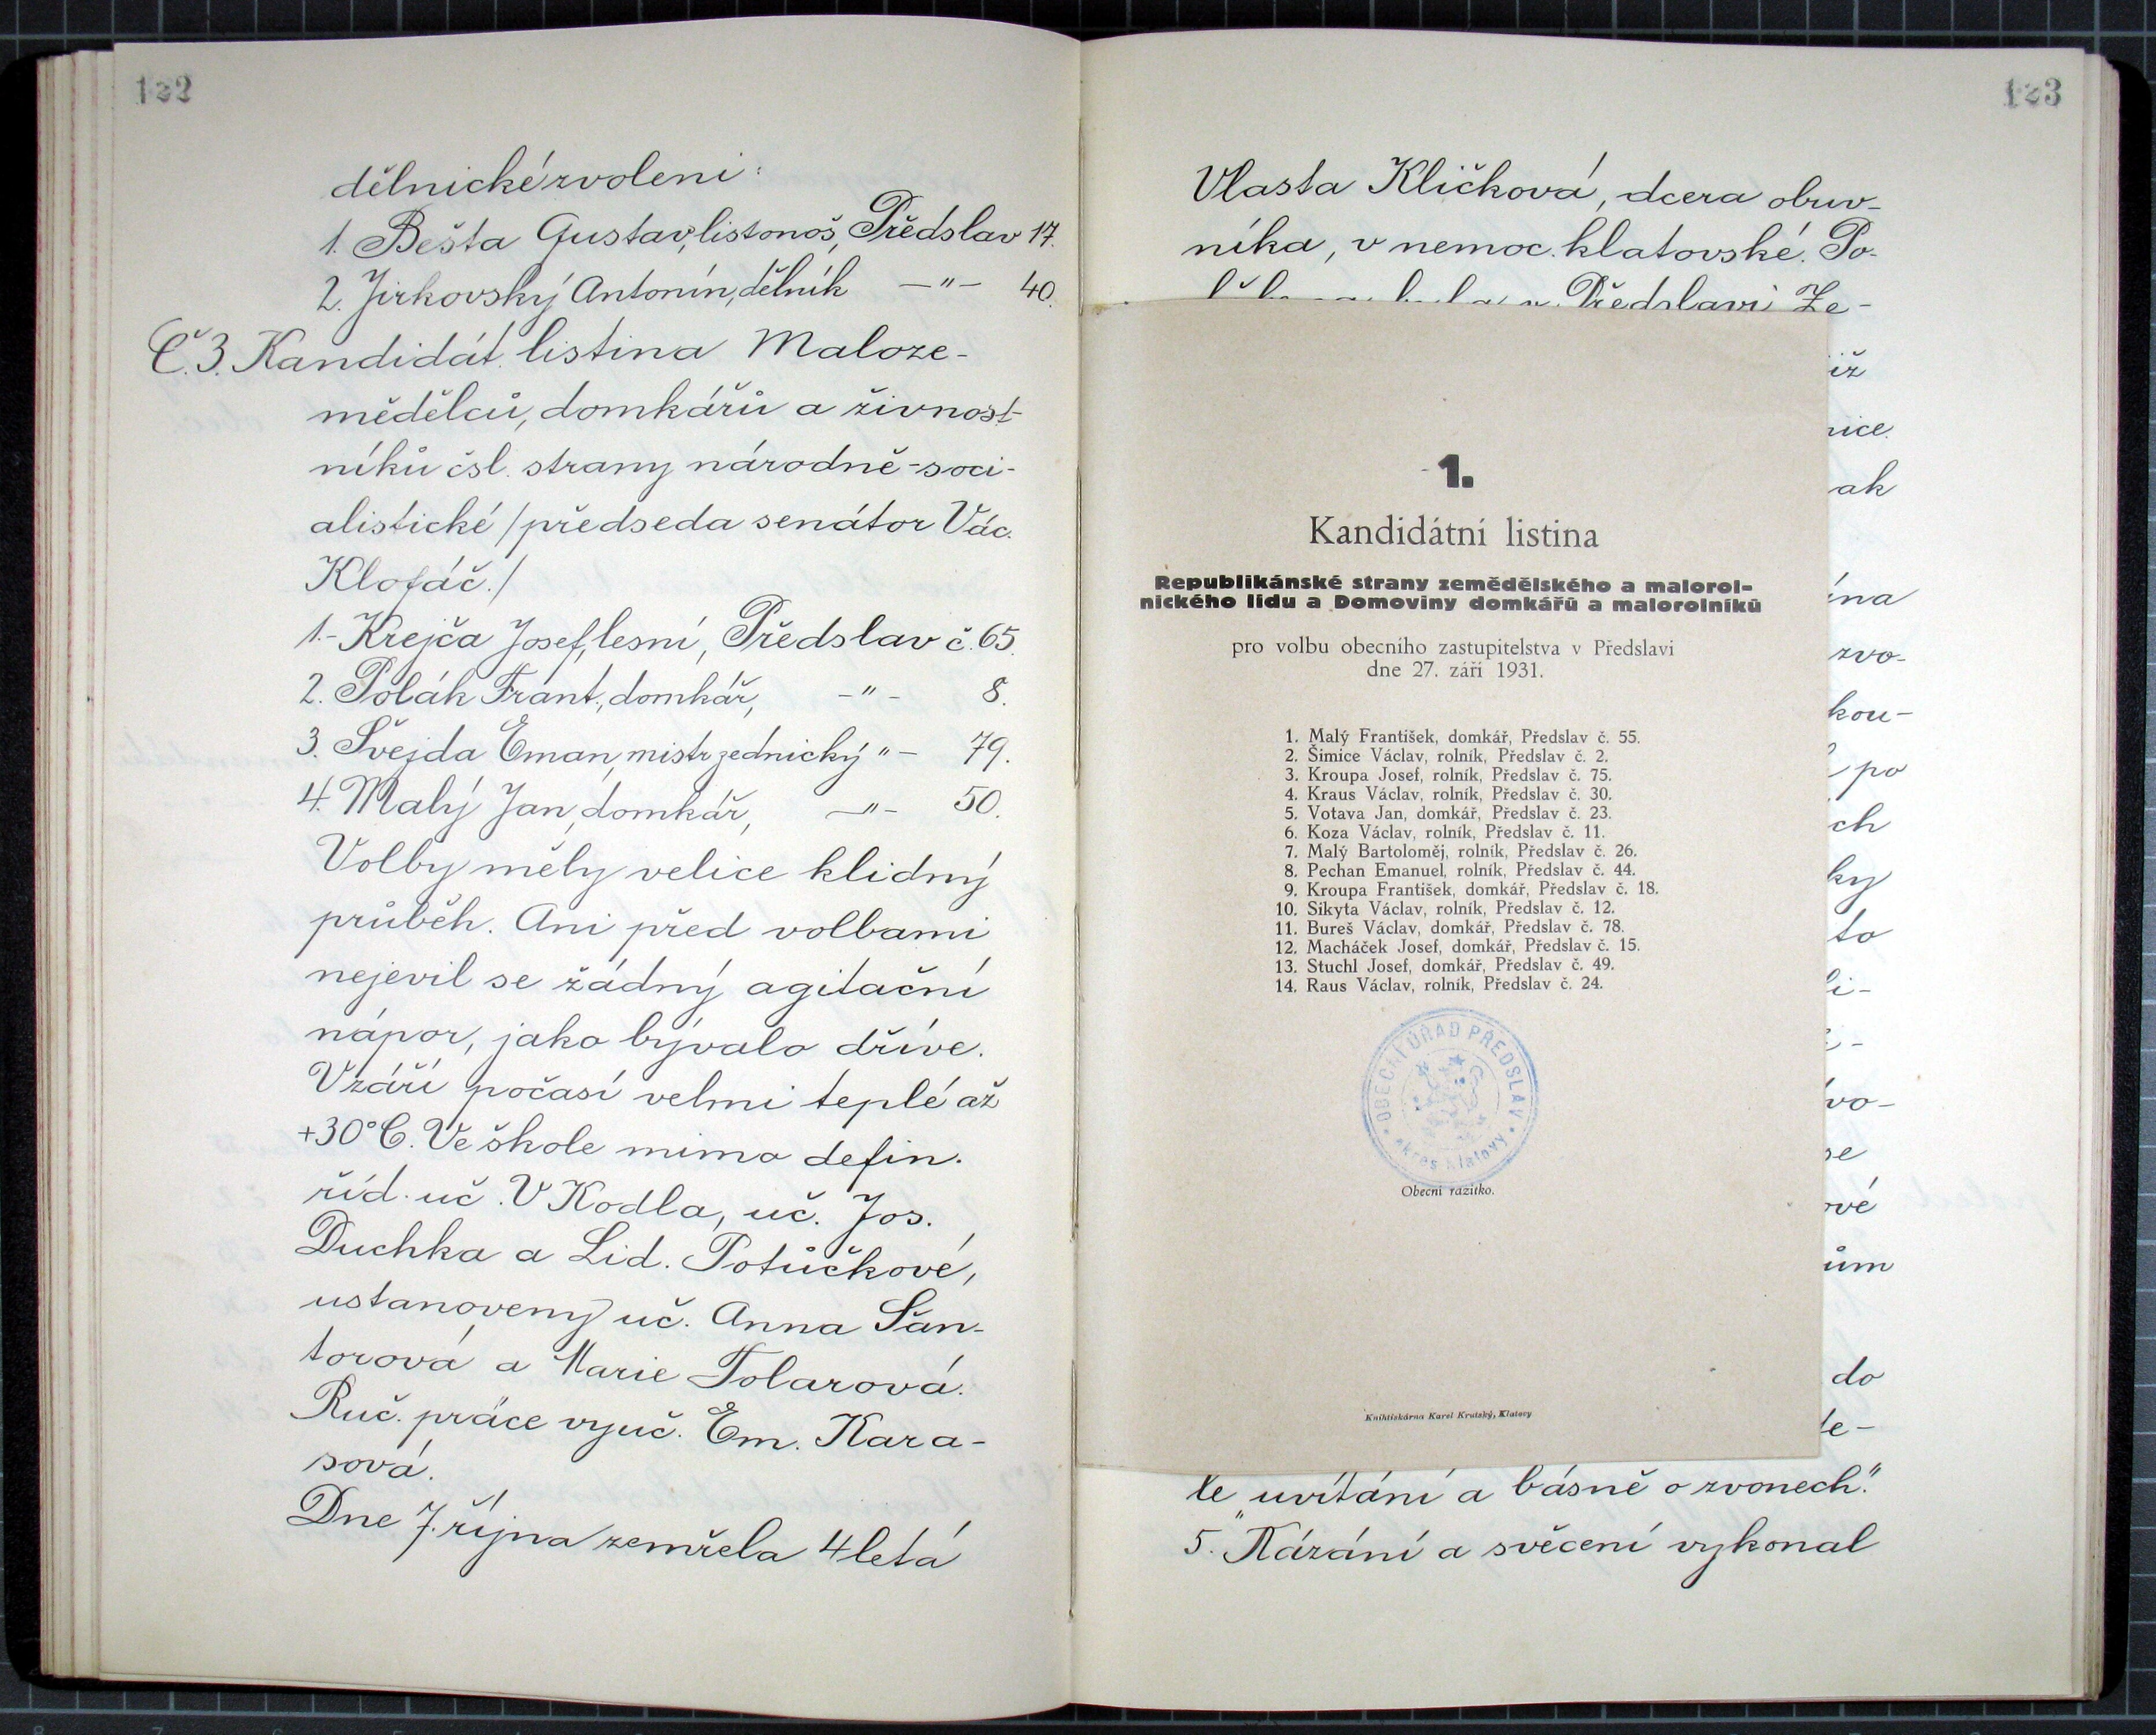 122
dělnické zvoleni:
1. Bešta Gustav, listonoš, Předslav 17.
2. Jirkovský Antonín, dělník —"— 40.
Č.3. Kandidát. listina Maloze-
mědělců, domkářů a živnost-
níků čsl. strany národně-soci-
alistické /předseda senátor Vác.
Klofáč./
1.- Krejča Josef, lesní, Předslav č. 65.
2. Polák Frant., domkář, -"- 8.
3. Švejda Eman, mistr zednický "- 79.
4. Malý Jan, domkář, —"- 50.
Volby měly velice klidný
průběh. Ani před volbami
nejevil se žádný agitační
nápor, jako bývalo dříve.
V září počasí velmi teplé až
+30°C. Ve škole mimo defin.
říd. uč. V Kodla, uč. Jos.
Duchka a Lid. Potůčkové,
ustanoveny uč. Anna Šan-
torová a Marie Tolarová.
Ruč. práce vyuč. Em. Kara-
sová.
Dne 7. října zemřela 4letá
123
Vlasta Kličková, dcera obuv-
níka, v nemoc. klatovské. Po-
Předslavi Ze-
již
nice.
ak
ína
zvo-
kou-
po
ch
ky
to
li-
vo-
se
ové
ům
do
1.
Kandidátní listina
Republikánské strany zemědělského a malorol-
nického lidu a Domoviny domkářů a malorolníků
pro volbu obecního zastupitelstva v Předslavi
dne 27. září 1931.
1. Malý František, domkář, Předslav č. 55.
2. Šimice Václav, rolník, Předslav č. 2.
3. Kroupa Josef, rolník, Předslav č. 75.
4. Kraus Václav, rolník, Předslav č. 30.
5. Votava Jan, domkář, Předslav č. 23.
6. Koza Václav, rolník, Předslav č. 11.
7. Malý Bartoloměj, rolník, Předslav č. 26.
8. Pechan Emanuel, rolník, Předslav č. 44.
9. Kroupa František, domkář, Předslav č. 18.
10. Sikyta Václav, rolník, Předslav č. 12.
11. Bureš Václav, domkář, Předslav č. 78.
12. Macháček Josef, domkář, Předslav č. 15.
13. Stuchl Josef, domkář, Předslav č. 49.
14. Raus Václav, rolník, Předslav č. 24.
OBECNÍ ÚŘAD PŘEDSLAV
okres Klatovy
Obecní razítko.
Knihtiskárna Karel Krutský, Klatovy
le „uvítání a básně o zvonech."
5. Kázání a svěcení vykonal